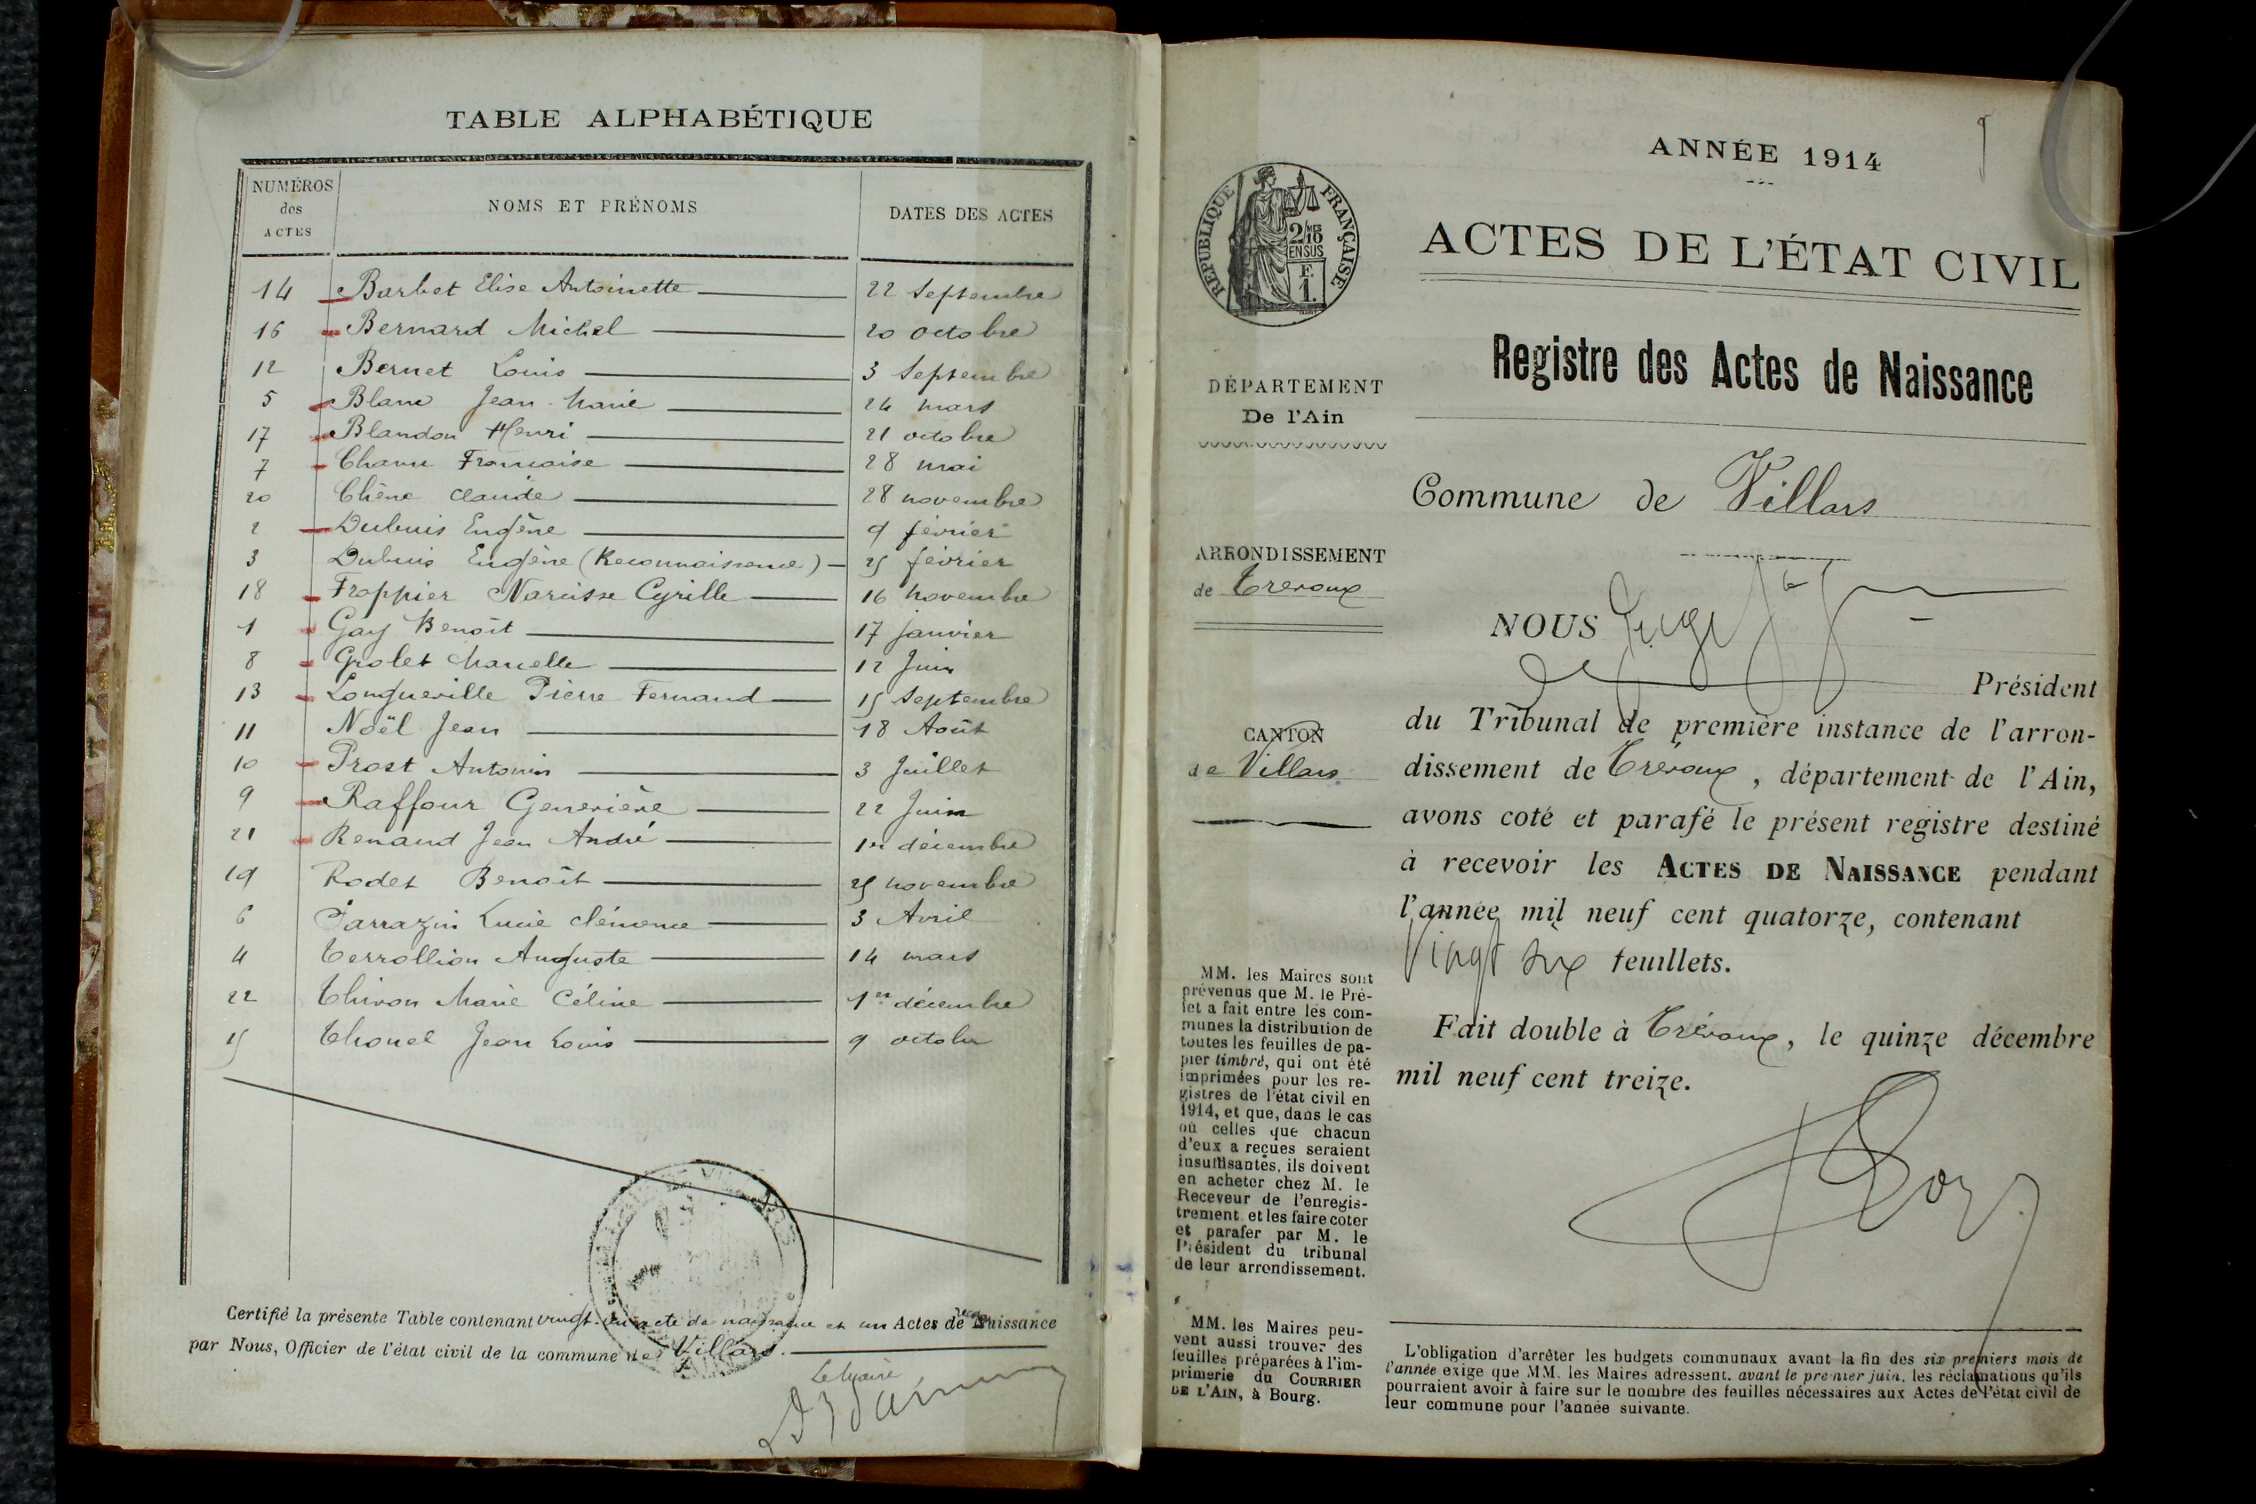 TABLE ALPHABÉTIQUE
NUMÉROS des ACTES NOMS ET PRÉNOMS DATES DES ACTES
14 Barbet Elise Antoinette 22 Septembre
16 Bernard Michel 20 octobre
12 Bernet Louis 3 Septembre
5 Blanc Jean-Marie 24 mars
17 Blandon Henri 21 octobre
7 Françoise 28 mai
20 Chêne Claude 28 novembre
2 Dubuis Eugène 9 février
3 Dubuis Eugène (Reconnaissance) 25 février
18 Frappier Narcisse Cyrille 16 novembre
1 Gay Benoît 17 janvier
8 Grolet Marcelle 12 Juin
13 Longueville Pierre Fernand 15 Septembre
11 Noël Jean 18 Août
10 Prost Antonin 3 Juillet
9 Raffour Geneviève 22 Juin
21 Renaud Jean André 1er décembre
19 Rodet Benoît 25 novembre
6 Sarrazin Lucie Clémence 3 Avril
4 Terrollion Auguste 14 mars
22 Thivon Marie Céline 1er décembre
15 Thonel Jean Louis 9 octobre
Certifié la présente Table contenant vingt-un acte de naissance et un Actes de
par Nous, Officier de l'état civil de la commune de Villars.
Le Maire
ANNÉE 1914
RÉPUBLIQUE FRANÇAISE
2/10 EN SUS
F. 1.
ACTES DE L'ÉTAT CIVIL
Registre des Actes de Naissance
DÉPARTEMENT
De l'Ain
Commune de Villars
ARRONDISSEMENT
de Trévoux
NOUS
Président
CANTON
de Villars
du Tribunal de première instance de l'arron-
dissement de Trévoux, département de l'Ain,
avons coté et parafé le présent registre destiné
à recevoir les ACTES DE NAISSANCE pendant
l'année mil neuf cent quatorze, contenant
vingt six feuillets.
Fait double à Trévoux, le quinze décembre
mil neuf cent treize.
MM. les Maires sont
prévenus que M. le Pré-
fet a fait entre les com-
munes la distribution de
toutes les feuilles de pa-
pier timbré, qui ont été
imprimées pour les re-
gistres de l'état civil en
1914, et que, dans le cas
où celles que chacun
d'eux a reçues seraient
insuffisantes, ils doivent
en acheter chez M. le
Receveur de l'enregis-
trement et les faire coter
et parafer par M. le
Président du tribunal
de leur arrondissement.
MM. les Maires peu-
vent aussi trouver des
feuilles préparées à l'im-
primerie du COURRIER
DE L'AIN, à Bourg.
L'obligation d'arrêter les budgets communaux avant la fin des six premiers mois de
l'année exige que MM. les Maires adressent, avant le premier juin, les réclamations qu'ils
pourraient avoir à faire sur le nombre des feuilles nécessaires aux Actes de l'état civil de
leur commune pour l'année suivante.